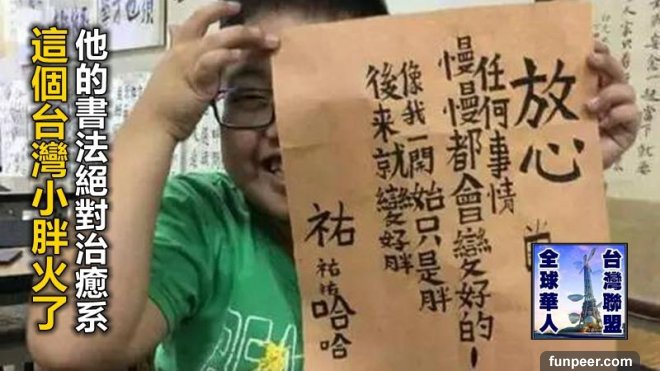 他的書法絕對治癒系
這個台灣小胖火了
放心
任何事情
慢慢都會變好的!
像我一開始只是胖
後来就變好胖
祐
祐祐哈哈
台灣聯盟
全球華人
funpeer.com